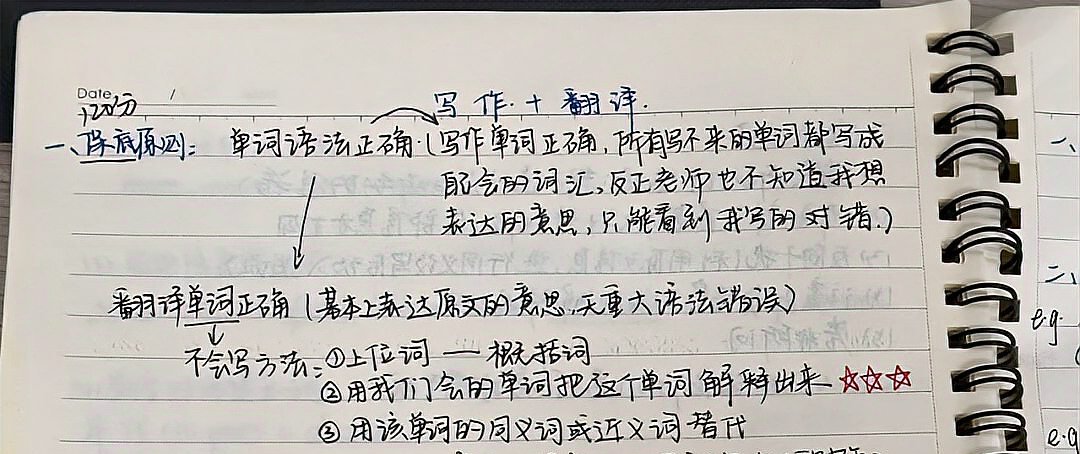 Date /
120分
写作.+翻译.
一、保底原则: 单词语法正确.(写作单词正确, 所有写不来的单词都写成
配会的词汇, 反正老师也不知道我想
表达的意思, 只能看到我写的对错.)
翻译单词正确 (基本上表达原文的意思,无重大语法错误)
不会写方法: ①上位词 — 概括词
②用我们会的单词把这个单词解释出来 ☆☆☆
③ 用该单词的同义词或近义词替代
一、
二、
e.g
e.g